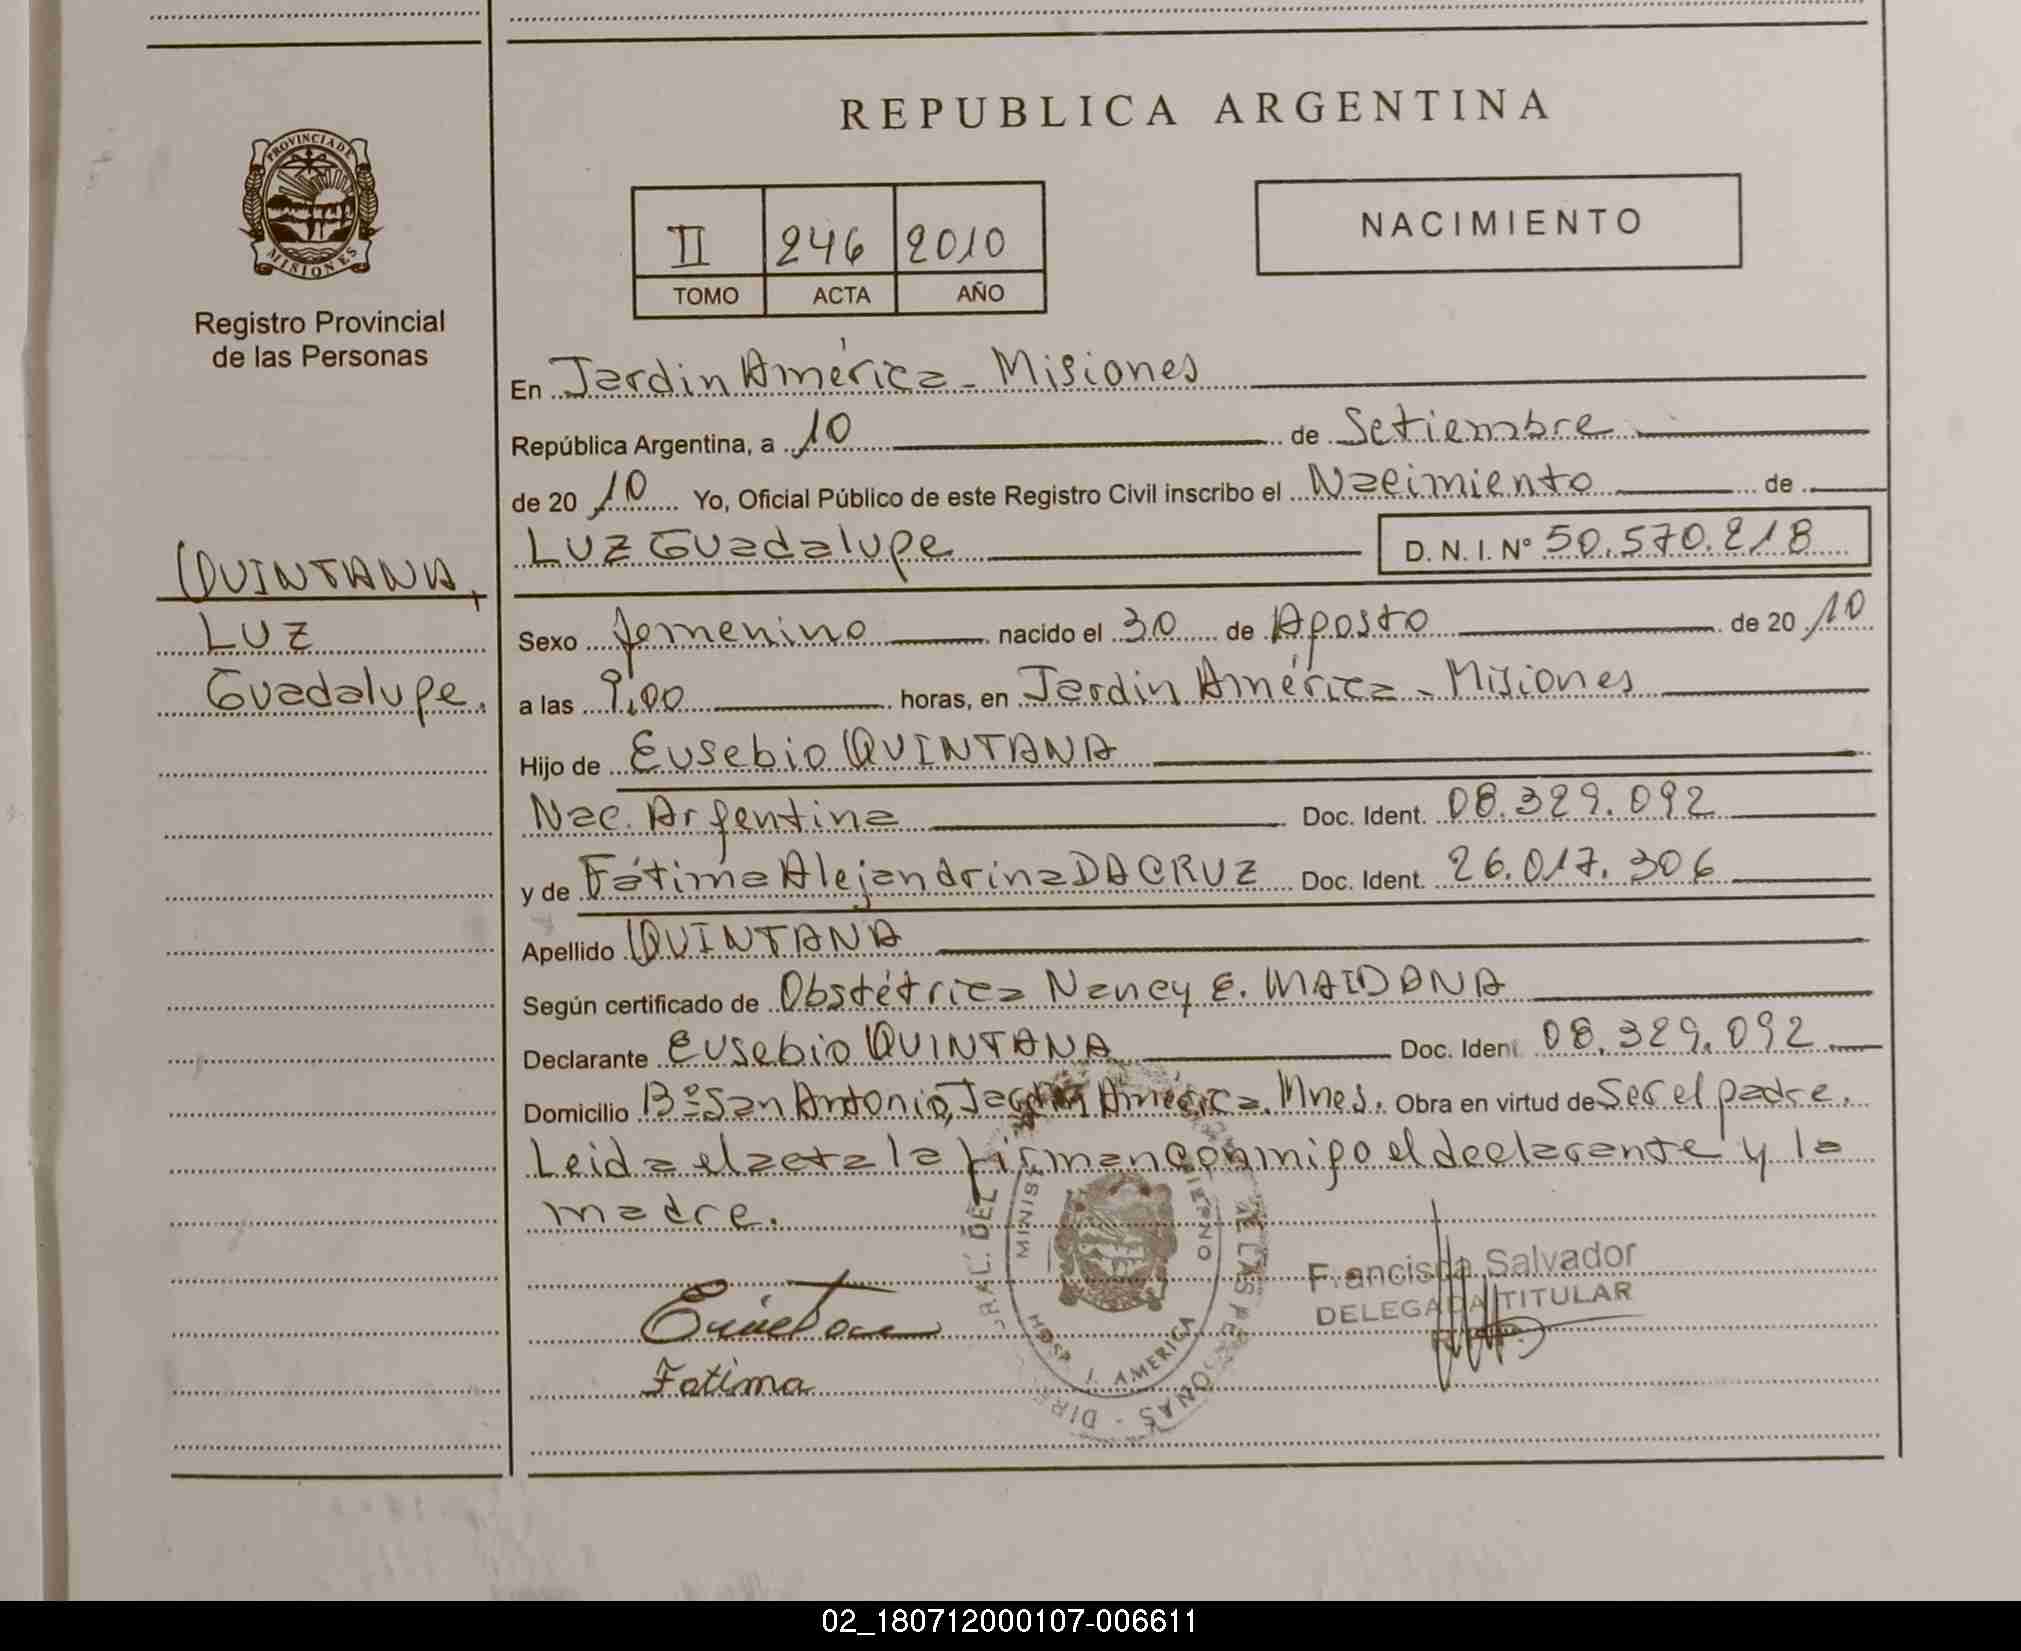 REPUBLICA ARGENTINA
PROVINCIA DE
MISIONES
Registro Provincial
de las Personas
II 246 2010
TOMO ACTA AÑO
NACIMIENTO
En Jardin América - Misiones
República Argentina, a 10 de Setiembre
de 2010 Yo, Oficial Público de este Registro Civil inscribo el Nacimiento de
LUZ Guadalupe D. N. I. Nº 50.570.218
QUINTANA,
LUZ
Guadalupe.
Sexo femenino nacido el 30 de Agosto de 2010
a las 9,00 horas, en Jardin América - Misiones
Hijo de Eusebio QUINTANA
Nac. Argentina Doc. Ident. 08.329.092
y de Fátima Alejandrina DA CRUZ Doc. Ident. 26.017.306
Apellido QUINTANA
Según certificado de Obstétrica Nancy E. MAIDANA
Declarante Eusebio QUINTANA Doc. Ident. 08.329.092
Domicilio Bº San Antonio, Jardin América. Mnes. Obra en virtud de Ser el padre.
Leida el acta la firman conmigo el declarante y la
madre.
Fatima
Francisca Salvador
DELEGADA TITULAR
HOSP. J. AMERICA
02_180712000107-006611